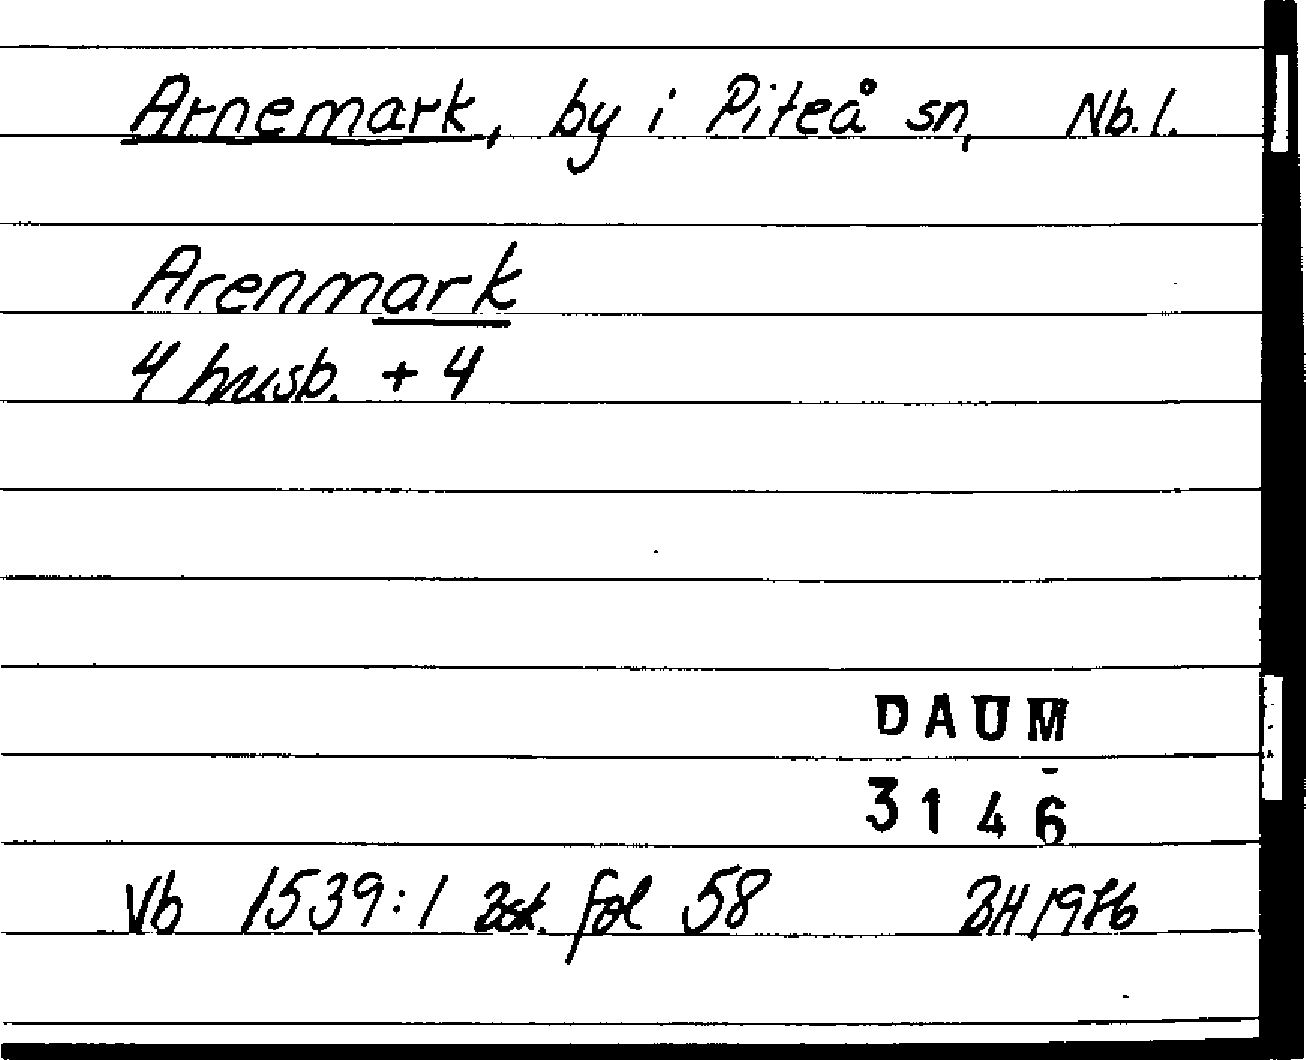 Arnemark, by i Piteå sn, Nb. l.
Arenmark
4 husb. + 4
DAUM
3146
Vb 1539:1 Bsk. fol 58 BH 1976